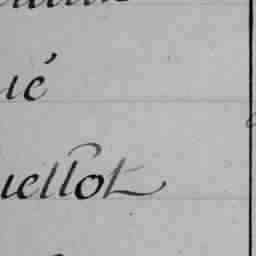 ué
uellot